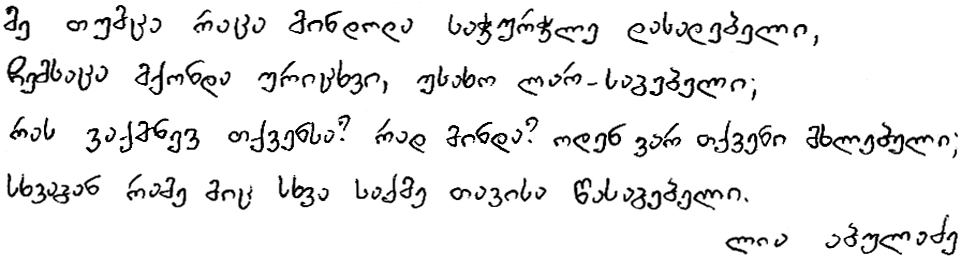 მე თუმცა რაცა მინდოდა საჭურჭლე დასადებელი,
ჩემსაცა მქონდა ურიცხვი, უსახო ლარ-საგებელი;
რას ვაქმნევ თქვენსა? რად მინდა? ოდენ ვარ თქვენი მხლებელი;
სხვაგან რამე მიც სხვა საქმე თავისა წასაგებელი.
ლია აბულაძე